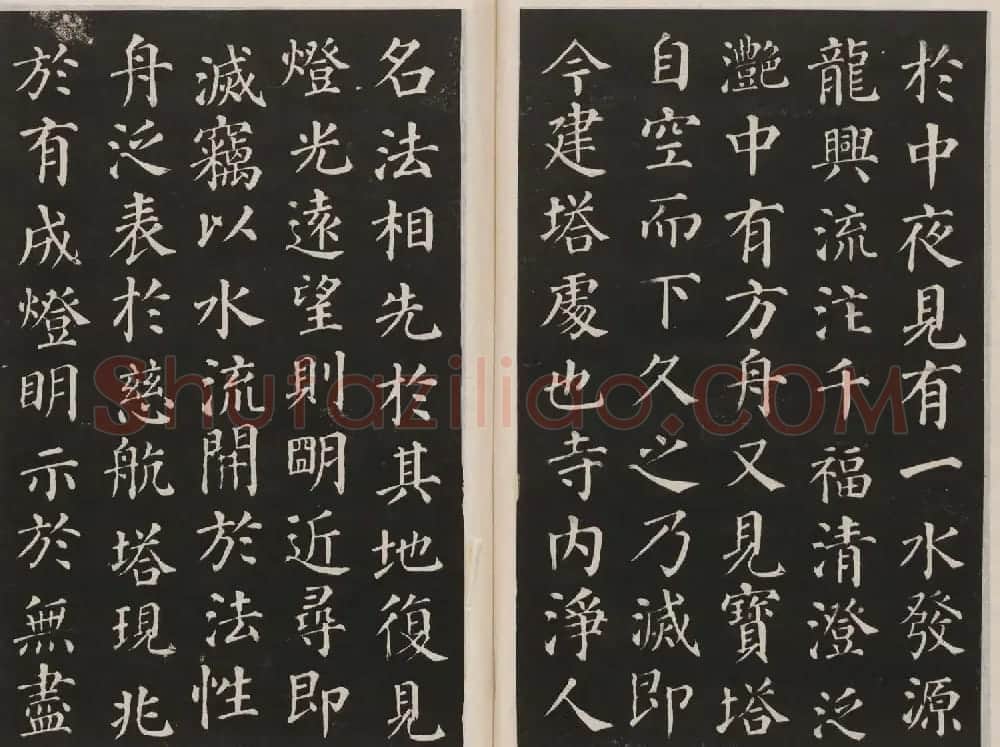 於中夜見有一水發源
龍興流注千福清澄泛
灩中有方舟又見寶塔
自空而下久之乃滅即
今建塔處也寺内淨人
名法相先於其地復見
燈光遠望則明近尋即
滅竊以水流開於法性
舟泛表於慈航塔現兆
於有成燈明示於無盡
Shufaziliao.COM